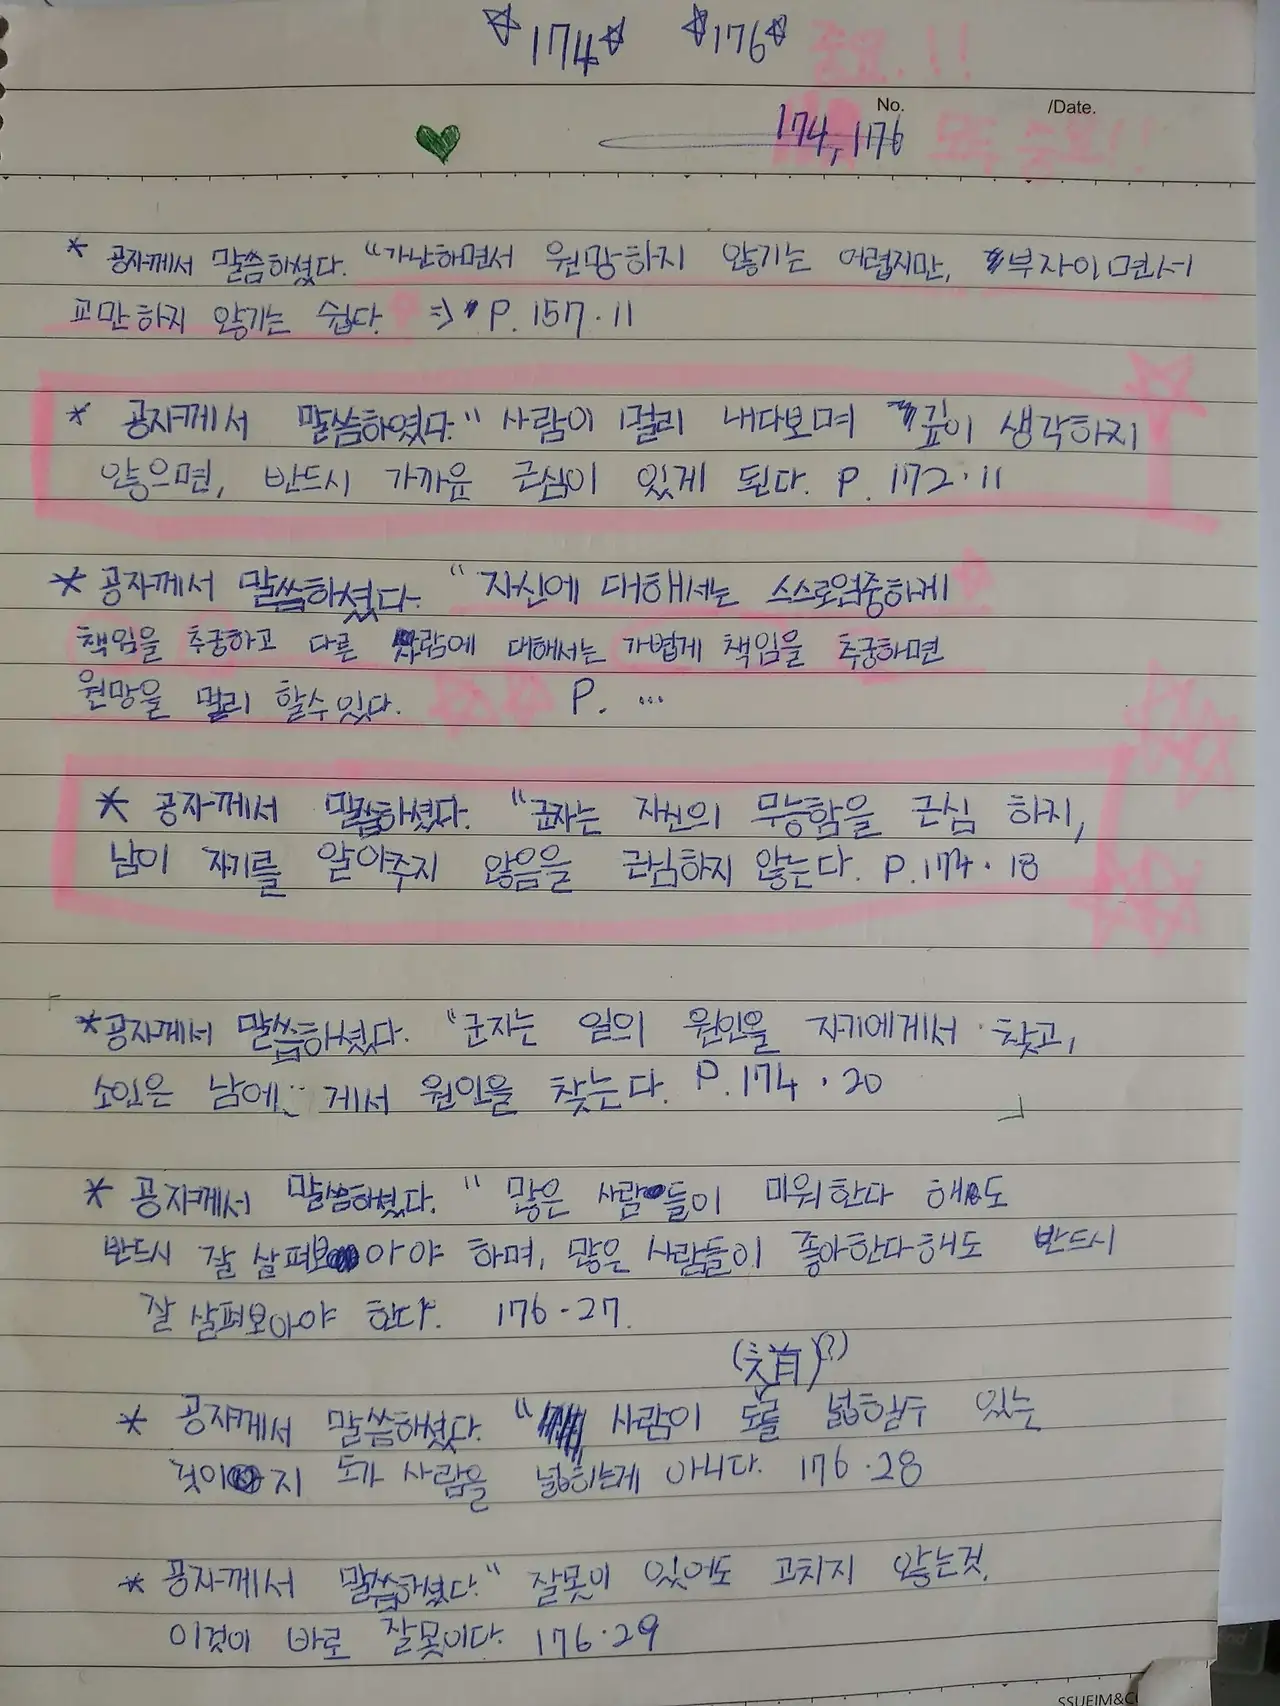 ☆174☆ ☆176☆
중요.!!
No. /Date.
174, 176
* 공자께서 말씀하셨다. "가난하면서 원망하지 않기는 어렵지만, 부자이면서
교만하지 않기는 쉽다. => P. 157·11
* 공자께서 말씀하였다." 사람이 멀리 내다보며 깊이 생각하지
않으면, 반드시 가까운 근심이 있게 된다. P. 172·11
* 공자께서 말씀하셨다. "자신에 대해서는 스스로엄중하게
책임을 추궁하고 다른 사람에 대해서는 가볍게 책임을 추궁하면
원망을 멀리 할수있다. P. ...
* 공자께서 말씀하셨다. "군자는 자신의 무능함을 근심 하지,
남이 자기를 알아주지 않음을 근심하지 않는다. P.174·18
*공자께서 말씀하셨다. "군자는 일의 원인을 자기에게서 찾고,
소인은 남에 게서 원인을 찾는다. P.174·20
* 공자께서 말씀하셨다. "많은 사람들이 미워한다 해도
반드시 잘 살펴보아야 하며, 많은 사람들이 좋아한다해도 반드시
잘 살펴보아야 한다. 176-27.
(道)(?)
* 공자께서 말씀하셨다. " 사람이 도를 넓힐수 있는
것이지 도가 사람을 넓히는게 아니다. 176·28
* 공자께서 말씀하셨다." 잘못이 있어도 고치지 않는것,
이것이 바로 잘못이다. 176·29